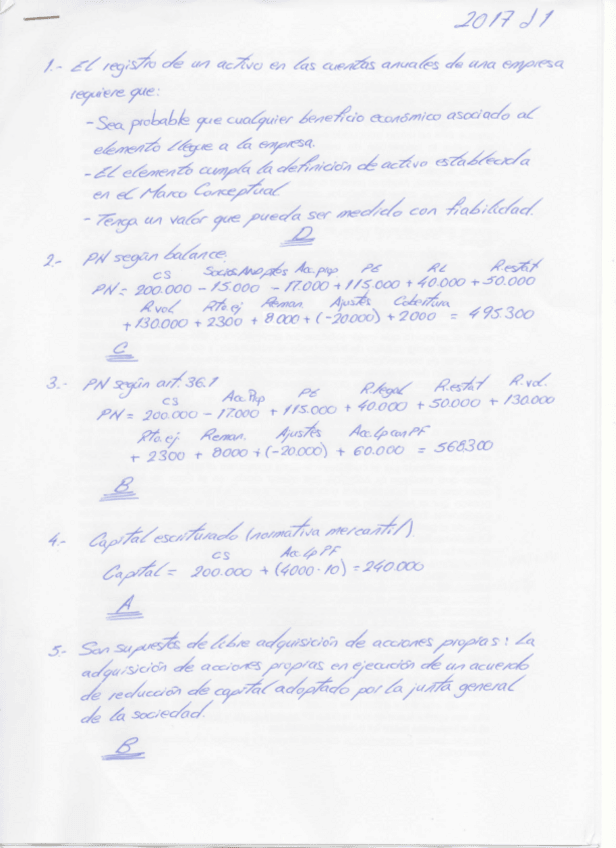 2017 J1
1.- El registro de un activo en las cuentas anuales de una empresa
requiere que:
- Sea probable que cualquier beneficio económico asociado al
elemento llegue a la empresa.
- El elemento cumpla la definición de activo establecida
en el Marco Conceptual
- Tenga un valor que pueda ser medido con fiabilidad.
D
2.- PN según balance.
CS Acc. prop PE RL R.estat
PN = 200.000 - 15.000 - 17.000 + 115.000 + 40.000 + 50.000
R.vol Rto.ej Reman. Ajustes Cobertura
+ 130.000 + 2300 + 8000 + (-20.000) + 2000 = 495.300
C
3.- PN según art. 36.1
CS Acc. Pop PE R.legal R.estat R.vol.
PN = 200.000 - 17.000 + 115.000 + 40.000 + 50.000 + 130.000
Rto.ej Reman. Ajustes Acc. Lp con PF
+ 2300 + 8000 + (-20.000) + 60.000 = 568.300
B
4.- Capital escriturado (normativa mercantil).
CS Acc. Lp PF
Capital = 200.000 + (4000 · 10) = 240.000
A
5- Son supuestos de libre adquisición de acciones propias: La
adquisición de acciones propias en ejecución de un acuerdo
de reducción de capital adoptado por la junta general
de la sociedad.
B